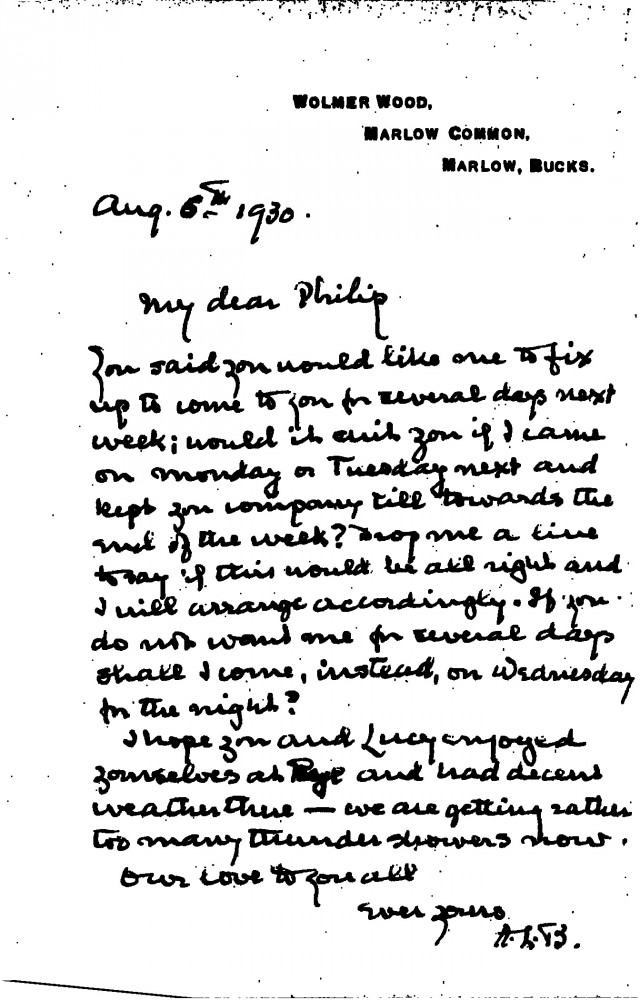 WOLMER WOOD,
MARLOW COMMON,
MARLOW, BUCKS.
Aug. 6th 1930.
My dear Philip
You said you would like me to fix
up to come to you for several days next
week; would it suit you if I came
on Monday or Tuesday next and
kept you company till towards the
end of the week? Drop me a line
to say if this would be all right and
I will arrange accordingly. If you
do not want me for several days
shall I come, instead, on Wednesday
for the night?
I hope you and Lucy enjoyed
yourselves at Rye and had decent
weather there — we are getting rather
too many thunder showers now.
Our love to you all
Ever yours